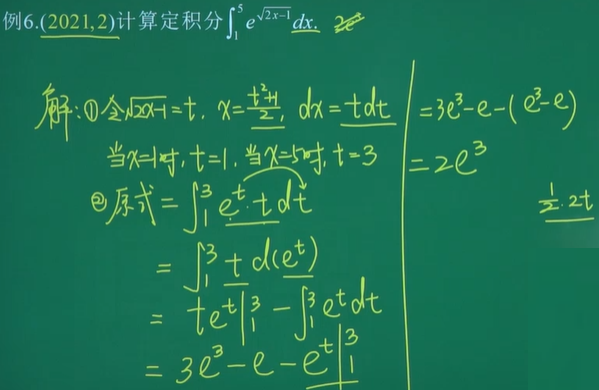 例6.(2021,2)计算定积分∫₁⁵ e^√(2x-1) dx. 2e³
解:①令√(2x-1)=t, x=(t²+1)/2, dx=tdt
当x=1时,t=1,当x=5时,t=3
②原式=∫₁³ e^t·t dt
=∫₁³ t d(e^t)
=te^t|₁³-∫₁³ e^t dt
=3e³-e-e^t|₁³
=3e³-e-(e³-e)
=2e³
1/2·2t